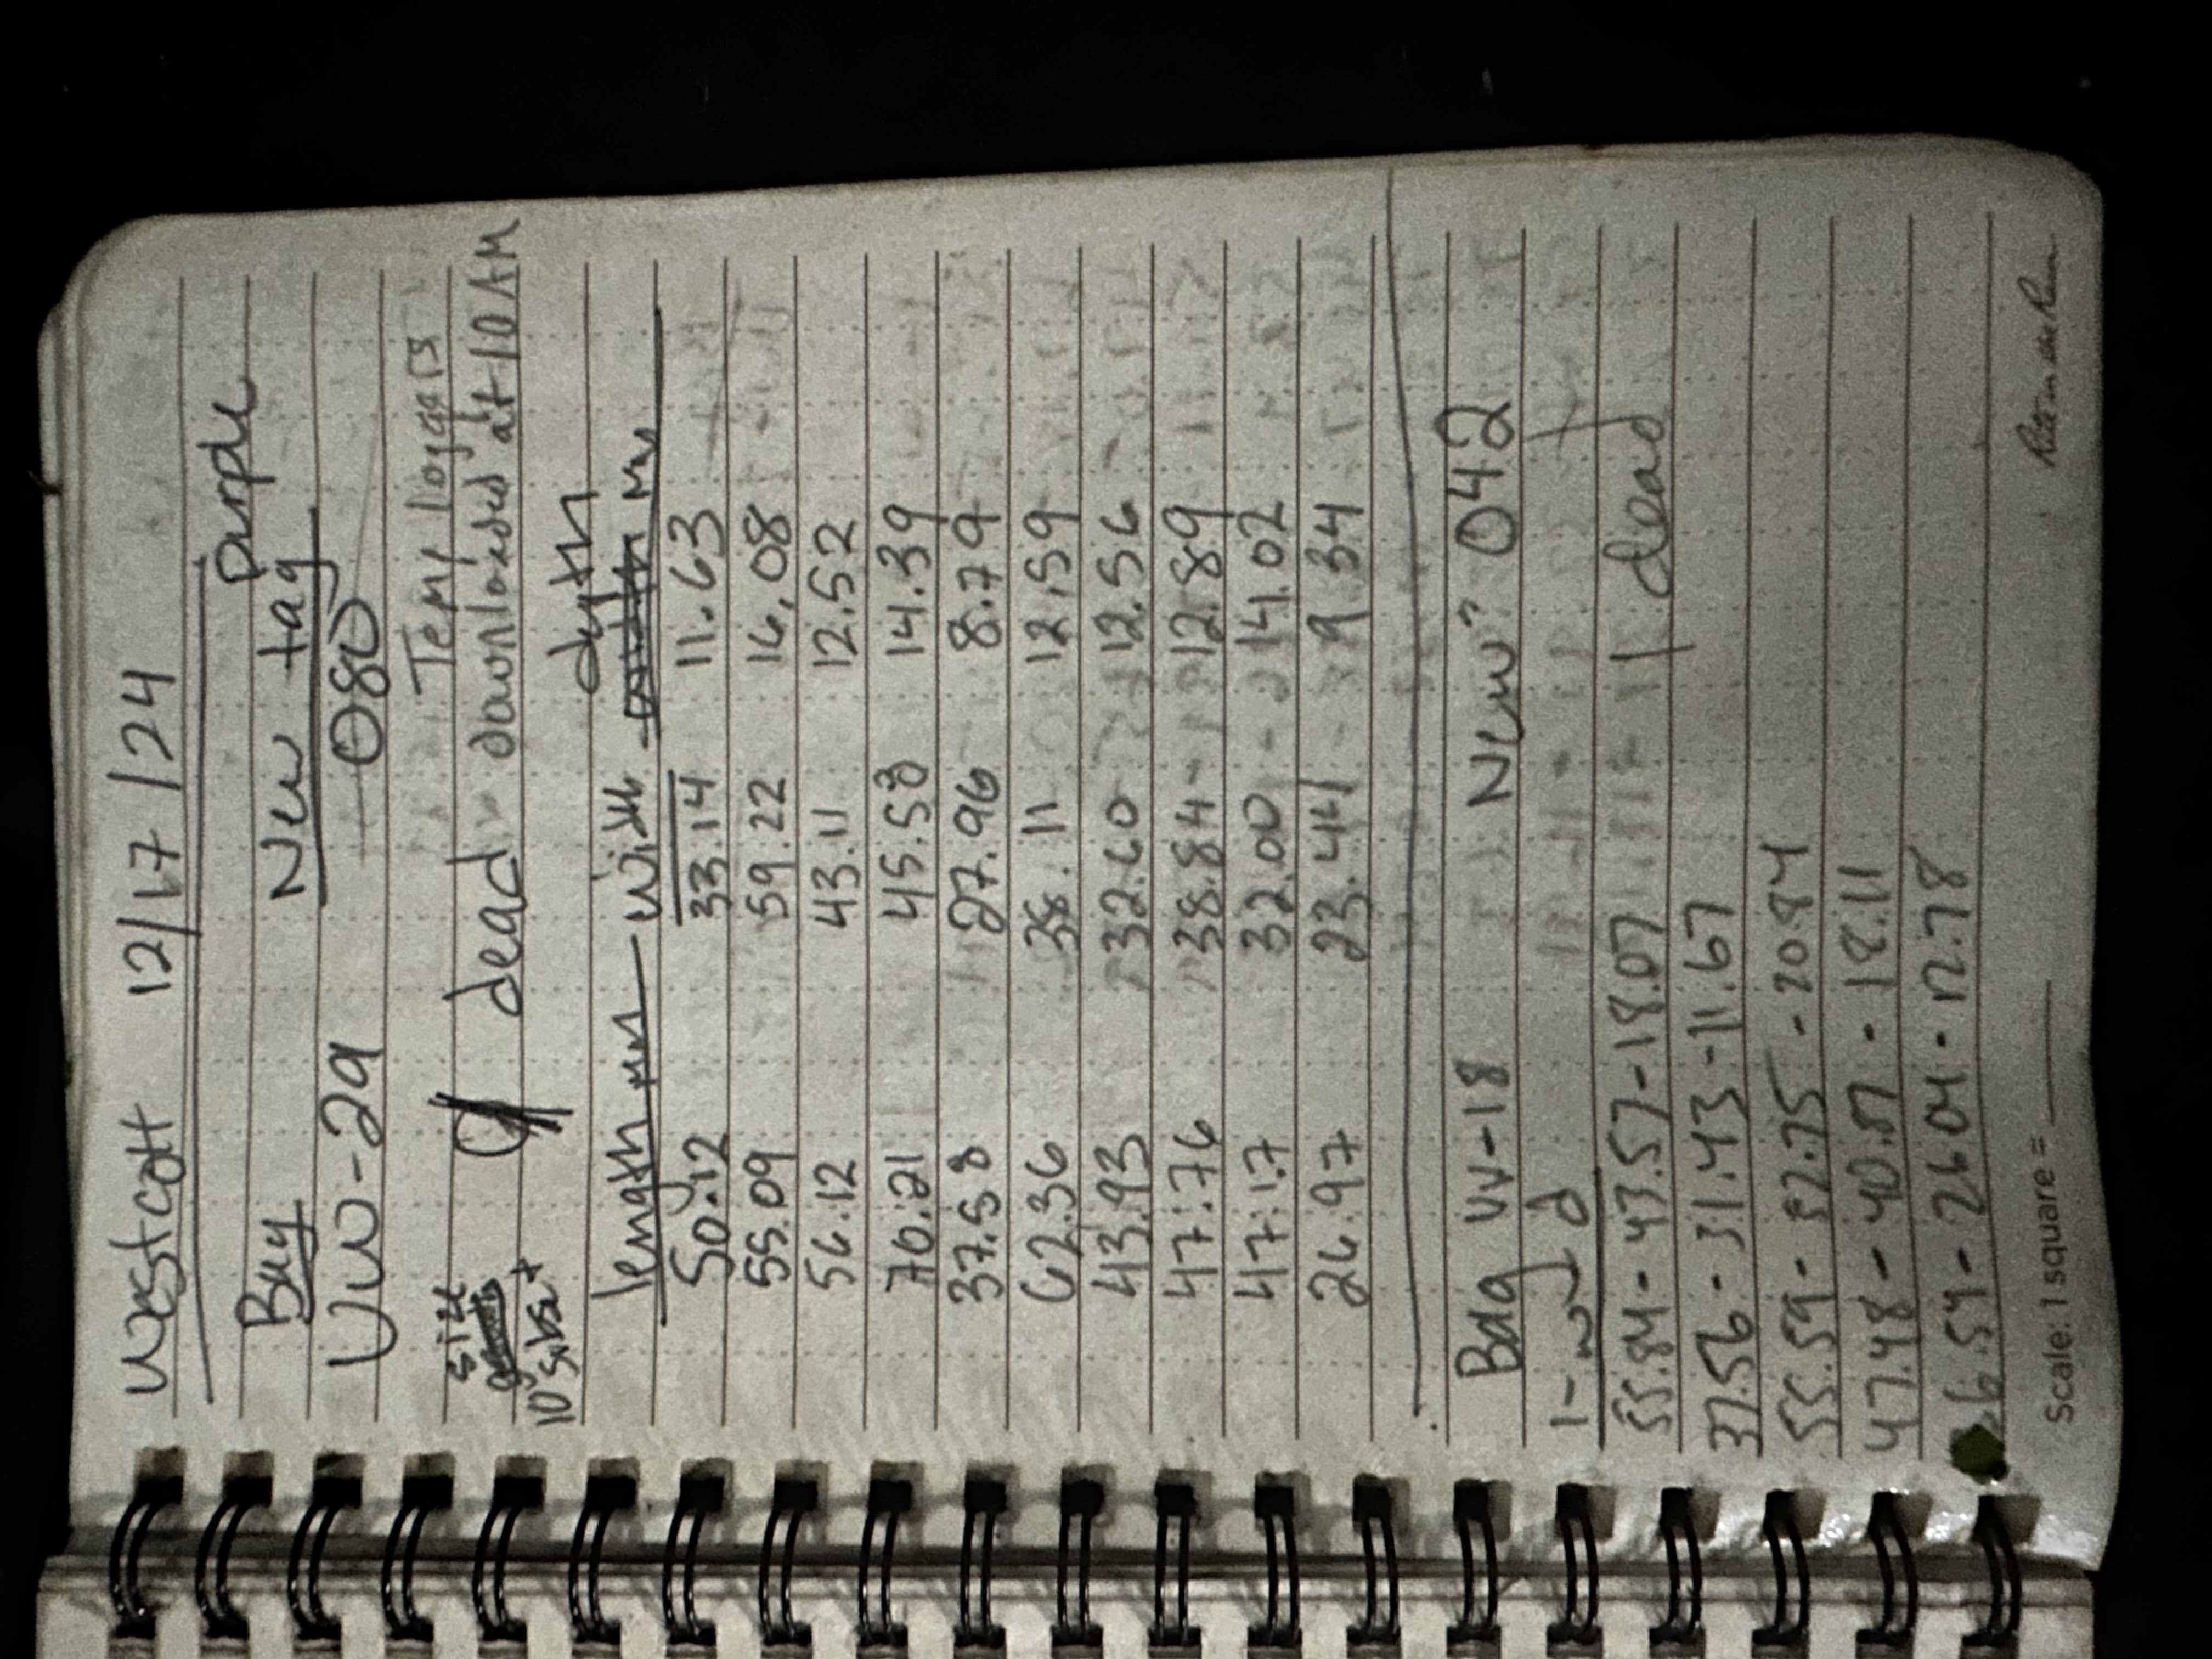 Westcott 12/17/24
purple
Bag New tag
UW-29 080
Temp loggers
size
dead downloaded at 10 AM
10 subset
depth
length mm width width mm
50.12 33.14 11.63
55.09 59.22 16.08
56.12 43.11 12.52
70.21 45.58 14.39
37.58 27.96 8.79
62.36 38.11 12.59
43.93 32.60 12.56
47.76 38.84 12.89
47.17 32.00 14.02
26.97 23.44 9 34
Bag VV-18 New: 042
l-w-d
55.84 - 43.57 - 18.07 1 dead
37.56 - 31.43 - 11.67
55.59 - 37.75 - 20.84
47.48 - - 18.11
- 26 04 - 12.78
Scale: 1 square =
Rite in the Rain